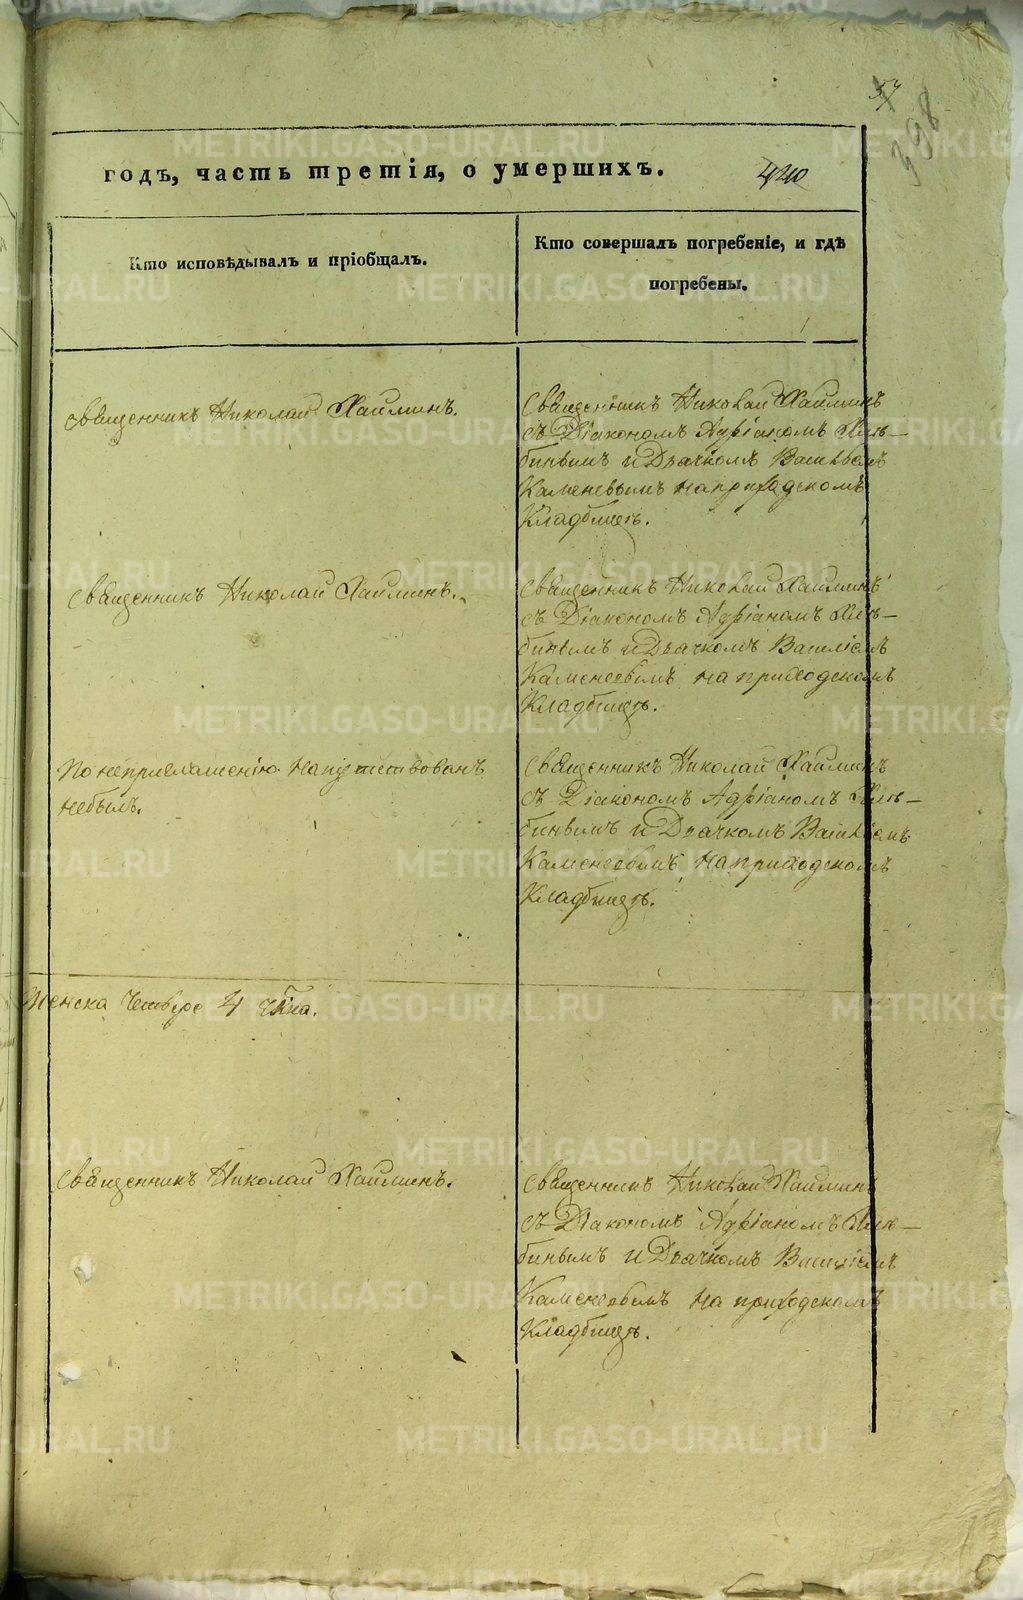 57
398
годъ, часть третія, о умершихъ.
420
Кто исповѣдывалъ и пріобщалъ.
Кто совершалъ погребеніе, и гдѣ
погребены.
Священникъ Николай Хайминъ.
Священникъ Николай Хайминъ
съ Діакономъ Адріаномъ Хлѣ–
бинымъ и Дьячкомъ Василіемъ
Каменевымъ на приходскомъ
Кладбищѣ.
Священникъ Николай Хайминъ.
Священникъ Николай Хайминъ
съ Діакономъ Адріаномъ Хлѣ–
бинымъ и Дьячкомъ Василіемъ
Каменевымъ на приходскомъ
Кладбищѣ.
По неприглашенію напутствованъ
небылъ.
Священникъ Николай Хайминъ
съ Діакономъ Адріаномъ Хлѣ–
бинымъ и Дьячкомъ Василіемъ
Каменевымъ на приходскомъ
Кладбищѣ.
женска четверо 4
Священникъ Николай Хайминъ.
Священникъ Николай Хайминъ
съ Діакономъ Адріаномъ Хлѣ–
бинымъ и Дьячкомъ Василіемъ
Каменевымъ на приходскомъ
Кладбищѣ.
METRIKI.GASO-URAL.RU